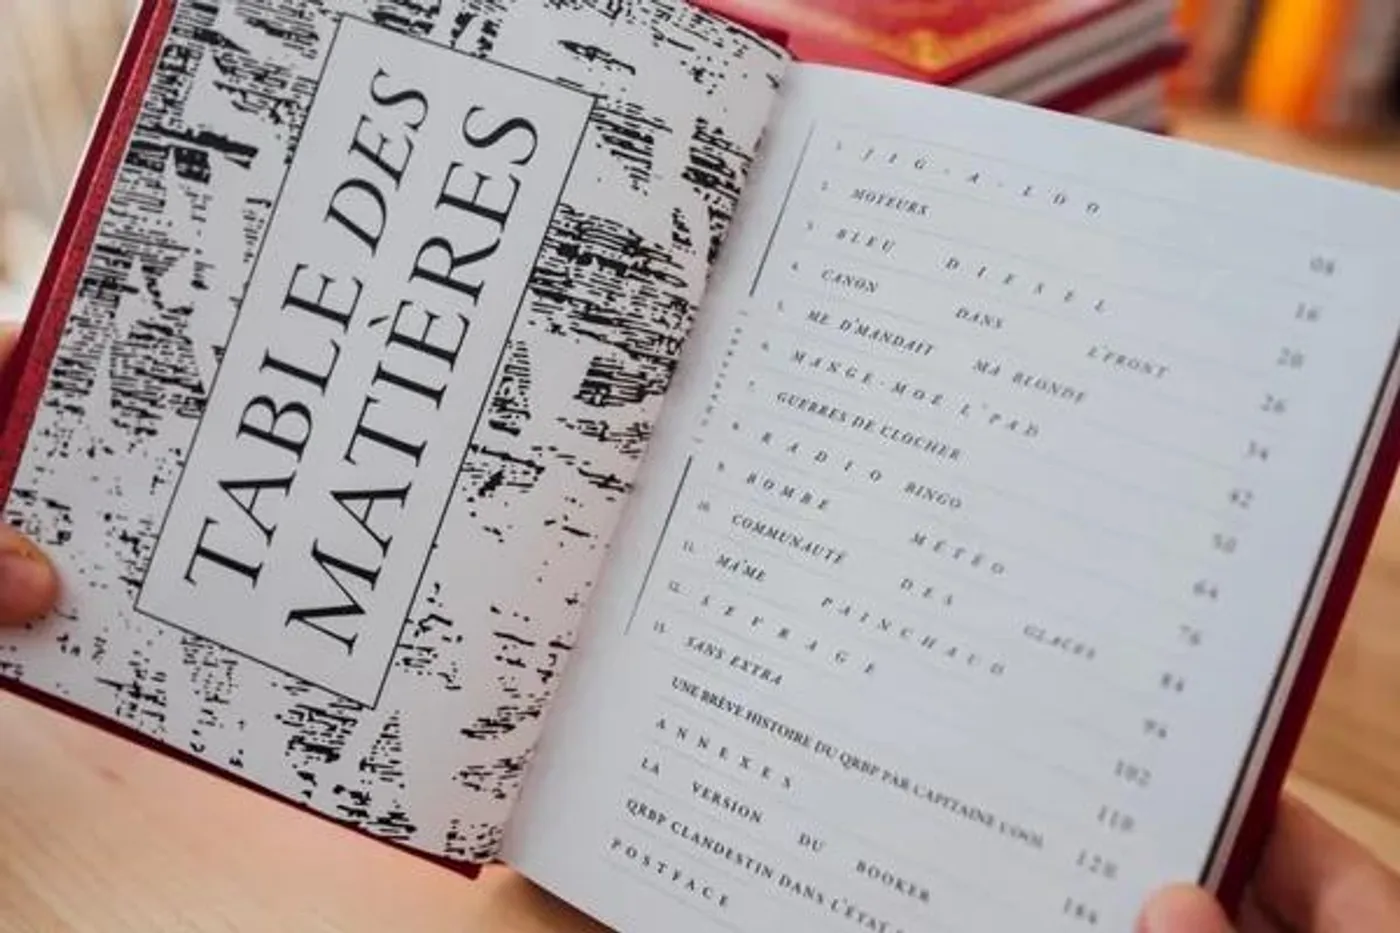 TABLE DES
MATIÈRES
1. JIG-A-L'OO 08
2. MOTEURS 16
3. BLEU DIESEL 20
4. CANON DANS L'FRONT 26
5. ME D'MANDAIT MA BLONDE 34
6. MANGE-MOÉ L'PAD 42
7. GUERRES DE CLOCHER 50
8. RADIO RINGO 64
9. BOMBE MÉTÉO 76
10. COMMUNAUTÉ DES GLACES 84
11. MA'ME PAINCHAUD 94
12. SEVRAGE 102
13. SANS EXTRA 110
UNE BRÈVE HISTOIRE DU QRBP PAR CAPITAINE COOL 128
ANNEXES 184
LA VERSION DU BOOKER
QRBP CLANDESTIN DANS L'ÉTAT
POSTFACE